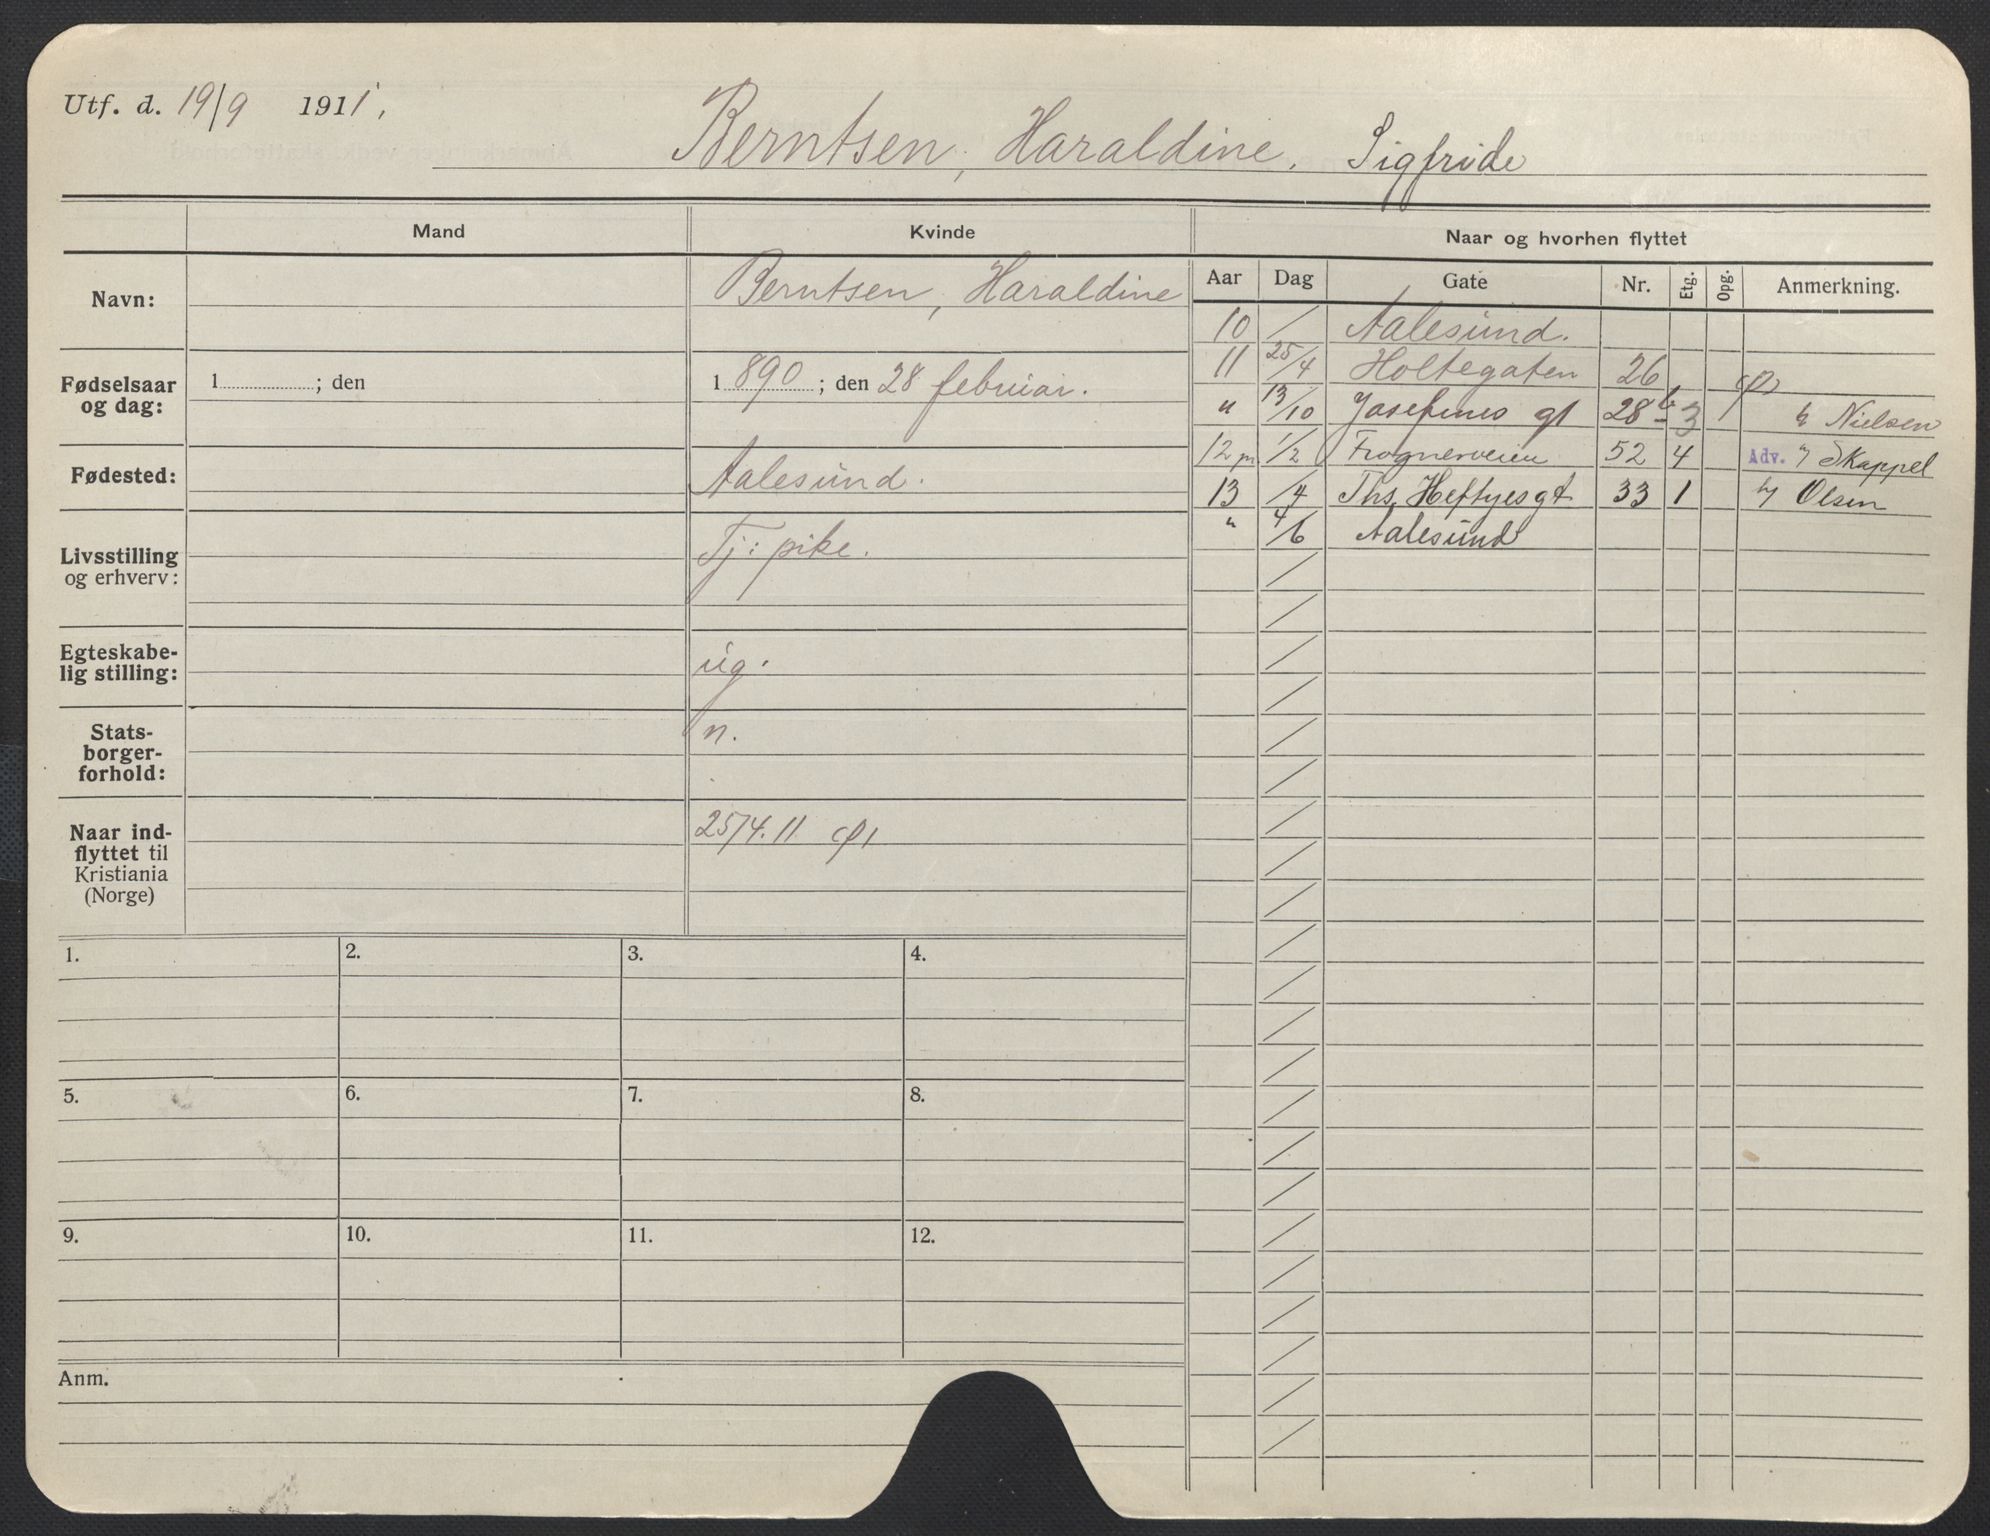 Utf. d. 19/9 1911.
Berntsen, Haraldine. Sigfride
Mand
Kvinde
Navn:
Berntsen, Haraldine
Fødselsaar og dag:
1 ; den
1 890 ; den 28 februar.
Fødested:
Aalesund.
Livsstilling og erhverv:
Tj: pike.
Egteskabe-
lig stilling:
ug.
Stats-
borger-
forhold:
n.
Naar ind-
flyttet til
Kristiania
(Norge)
25/4.11
1. 2. 3. 4.
5. 6. 7. 8.
9. 10. 11. 12.
Anm.
Naar og hvorhen flyttet
Aar Dag Gate Nr. Etg. Opg. Anmerkning.
10 / Aalesund.
11 25/4 Holtegaten 26
" 13/10 Josefines gt 28 b 3 Nielsen
12 1/2 Frognerveien 52 4 Adv. Skappel
13 /4 Ths. Heftyesgt 33 1 Olsen
" 4/6 Aalesund